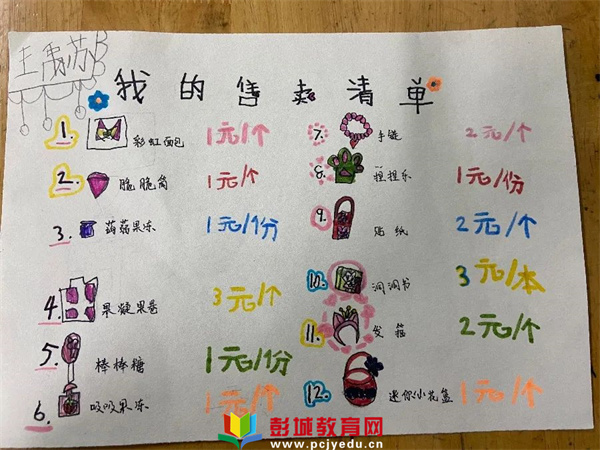 我的售卖清单
1. 彩虹面包 1元/个
2. 脆脆筒 1元/个
3. 蒟蒻果冻 1元/份
4. 果凝果卷 3元/个
5. 棒棒糖 1元/份
6. 吸吸果冻 1元/个
7. 手链 2元/个
8. 捏捏乐 1元/份
9. 贴纸 2元/个
10. 洞洞书 3元/本
11. 发箍 2元/个
12. 迷你小花盆 1元/个
彭城教育网
www.pcjyedu.cn